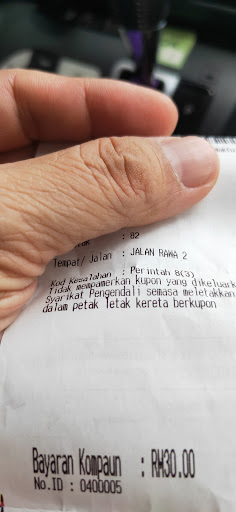 : 82
Tempat/ Jalan : JALAN RAWA 2
Kod Kesalahan : Perintah 8(3)
Tidak mempamerkan kupon yang dikeluark
Syarikat Pengendali semasa meletakkan
dalam petak letak kereta berkupon
Bayaran Kompaun : RM30.00
No.ID : 0400005